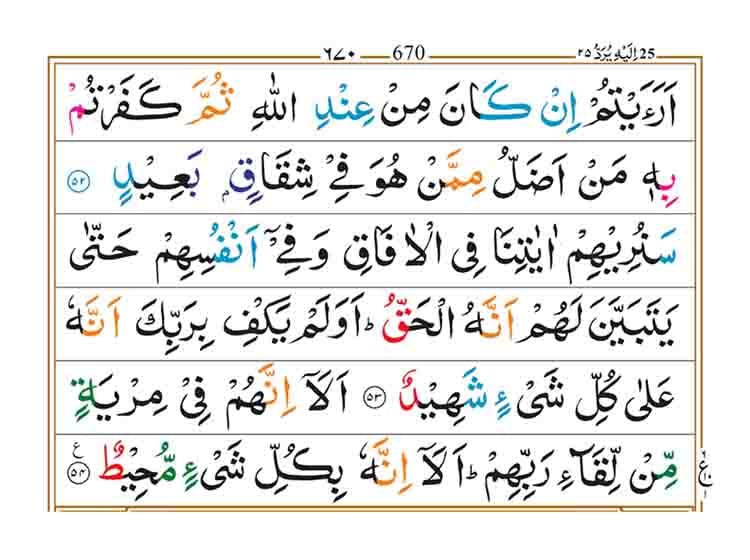 ٦٧٠ 670 اِلَیْهِ یُرَدُّ ٢٥ 25
اَرَءَیْتُمْ اِنْ كَانَ مِنْ عِنْدِ اللّٰهِ ثُمَّ كَفَرْتُمْ
بِهٖ مَنْ اَضَلُّ مِمَّنْ هُوَ فِیْ شِقَاقٍۭ بَعِیْدٍ ٥٢
سَنُرِیْهِمْ اٰیٰتِنَا فِی الْاٰفَاقِ وَ فِیْۤ اَنْفُسِهِمْ حَتّٰى
یَتَبَیَّنَ لَهُمْ اَنَّهُ الْحَقُّؕ اَوَ لَمْ یَكْفِ بِرَبِّكَ اَنَّهٗ
عَلٰى كُلِّ شَیْءٍ شَهِیْدٌ ٥٣ اَلَاۤ اِنَّهُمْ فِیْ مِرْیَةٍ
مِّنْ لِّقَآءِ رَبِّهِمْؕ اَلَاۤ اِنَّهٗ بِكُلِّ شَیْءٍ مُّحِیْطٌ ٥٤ ع
ع